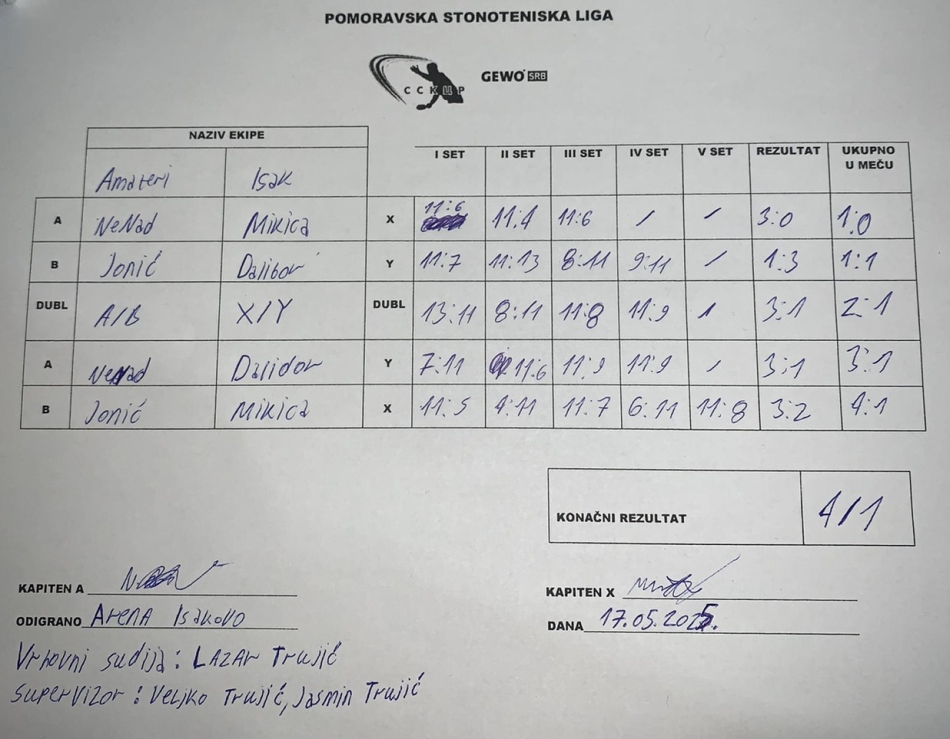 POMORAVSKA STONOTENISKA LIGA
ССКЦР GEWO SRB
NAZIV EKIPE
I SET II SET III SET IV SET V SET REZULTAT UKUPNO U MEČU
Amateri Isak
A NeNad Mikica X 11:6 11:4 11:6 / / 3:0 1:0
B Jonić Dalibor Y 11:7 11:13 8:11 9:11 / 1:3 1:1
DUBL A/B X/Y DUBL 13:11 8:11 11:8 11:9 / 3:1 2:1
A NeNad Dalidor Y 7:11 11:6 11:9 11:9 / 3:1 3:1
B Jonić Mikica X 11:5 4:11 11:7 6:11 11:8 3:2 4:1
KONAČNI REZULTAT 4/1
KAPITEN A KAPITEN X
ODIGRANO Arena Isakovo DANA 17.05.2025.
Vrhovni sudija: LAZAR Trujić
Supervizor: Veljko Trujić, Jasmin Trujić